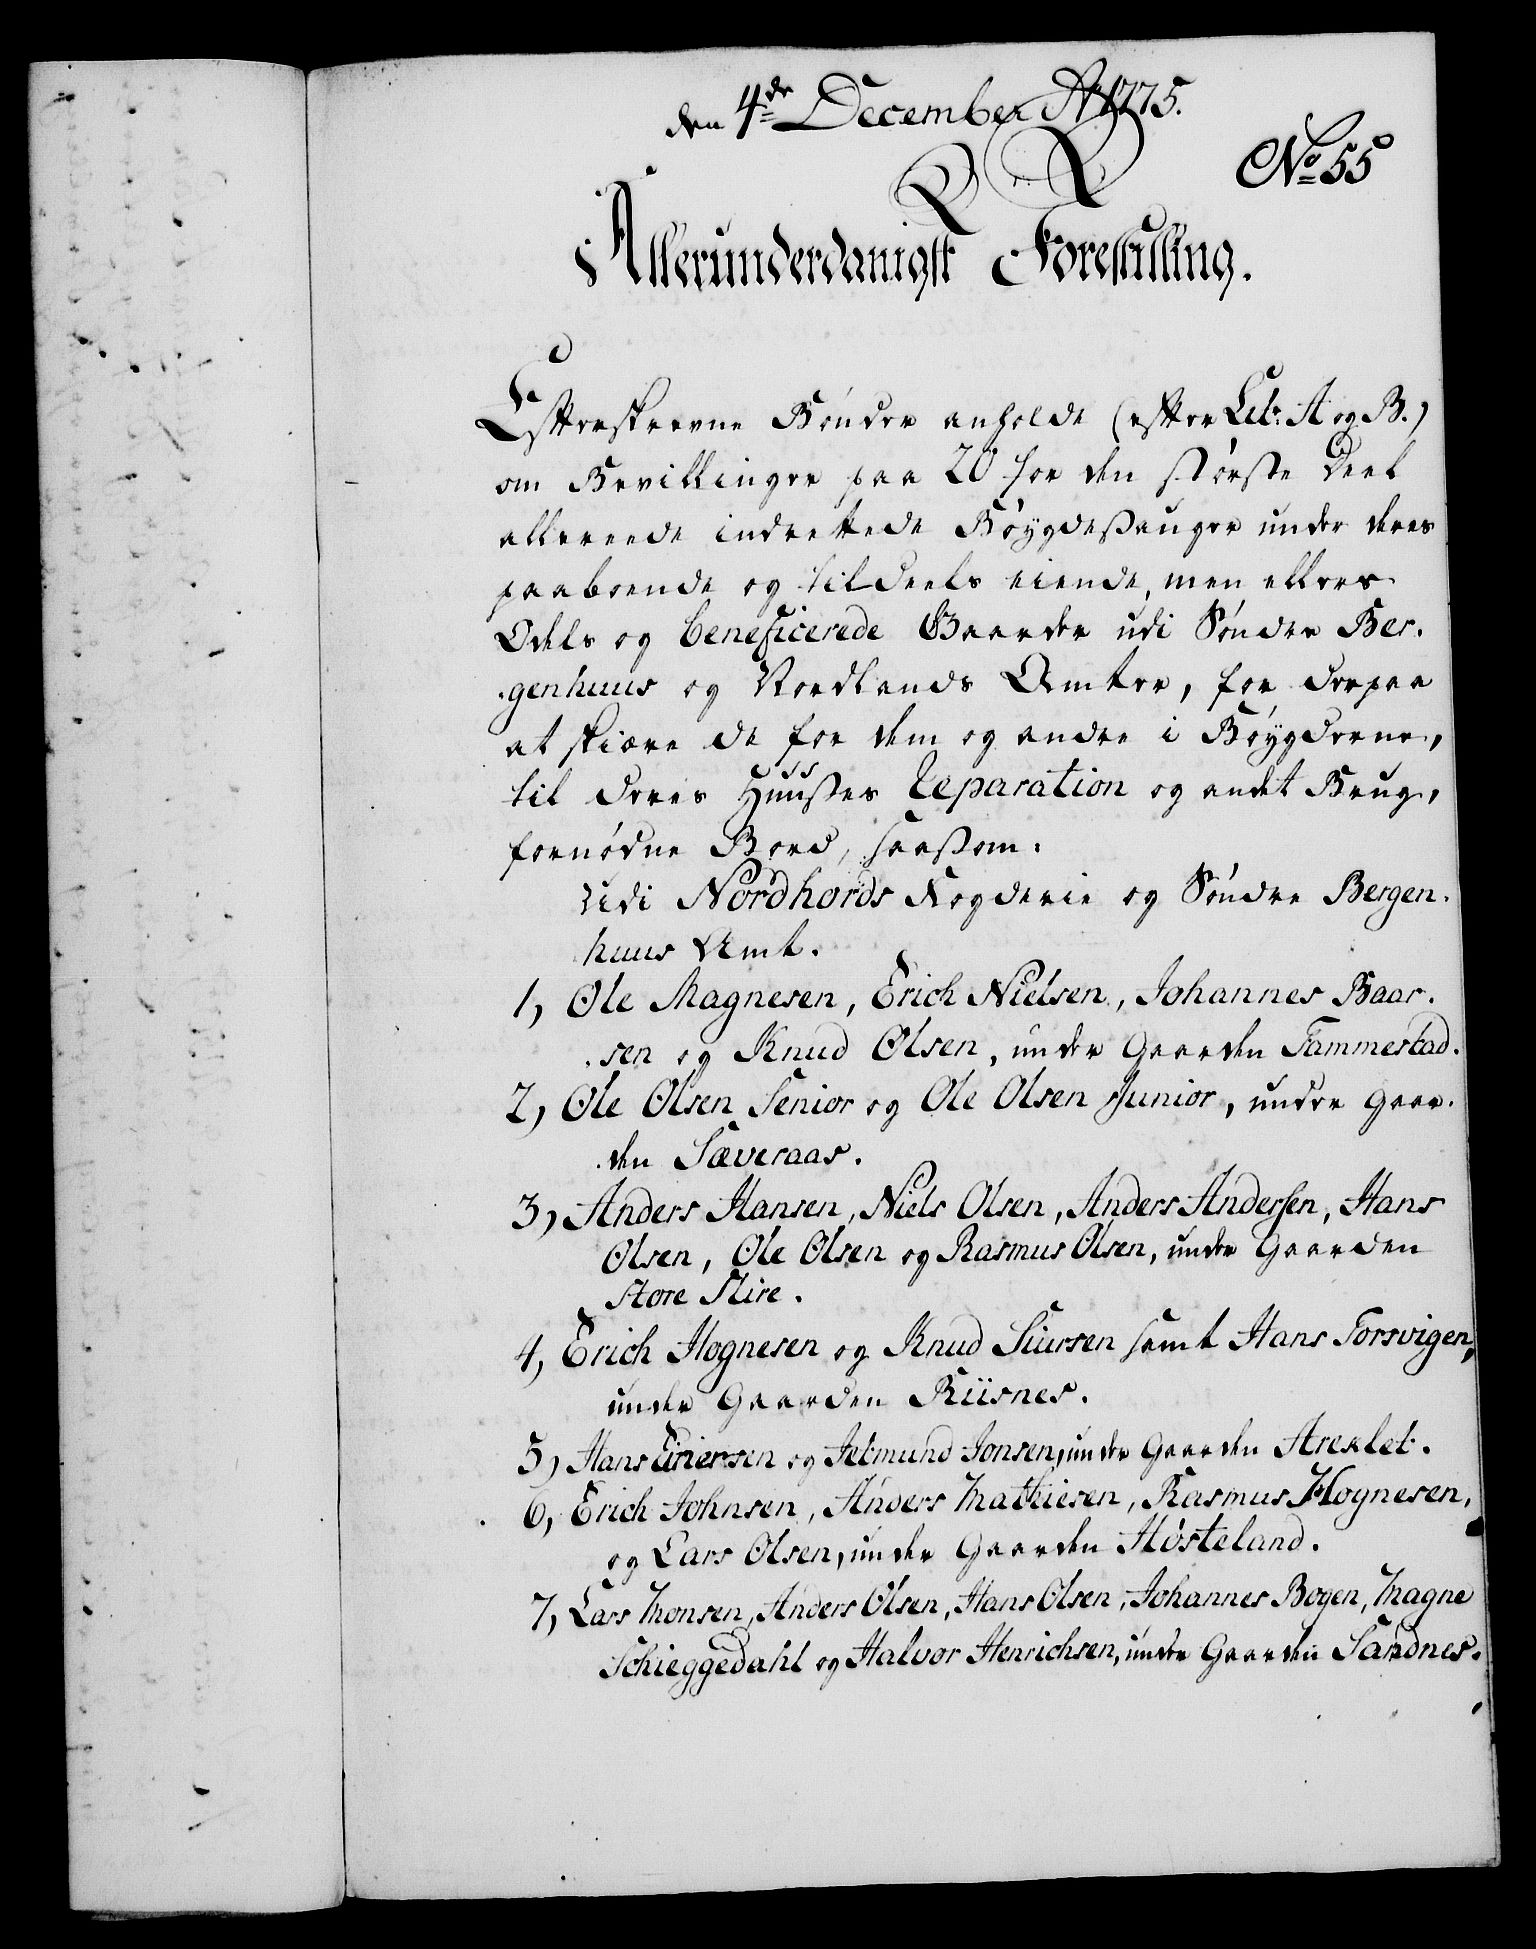 den 4de December Ao 1775.
No 55
Allerunderdanigst Forestilling.
Efterskrevne Bønder anholde (efter Lit: A og B.)
om Bevillinger paa 20 for den største Deel
allereede indrettede Bøygdesauger under deres
paaboende og tildeels eiende, men ellers
Odels og beneficerede Gaarder udi Sønder Ber-
-genhuus og Nordlands Amter, for derpaa
at skiære de for dem og andre i Bøygderne,
til deres Huusses Reparation og andet Brug,
fornødne Bord, saasom:
Udi Nordhords Fogderie og Søndre Bergen-
huus Amt.
1, Ole Magnesen, Erich Nielsen, Johannes Baar-
-sen og Knud Olsen, under Gaarden Tammestad.
2, Ole Olsen Senior og Ole Olsen Junior, under Gaar-
-den Sæveraas.
3, Anders Hansen, Niels Olsen, Anders Andersen, Hans
Olsen, Ole Olsen og Rasmus Olsen, under Gaarden
store
4, Erich Hognesen og Knud Siursen samt Hans Torsvigen,
under Gaarden Riisnes.
5, Hans og Jetmund Jonsen, under Gaarden
6, Erich Johnsen, Anders Mathiesen, Rasmus Hognesen,
og Lars Olsen, under Gaarden Høsteland.
7, Lars Monsen, Anders Olsen, Hans Olsen, Johannes Bogen, Magne
Schieggedahl og Halvor Henrichsen, under Gaarden Sandnes.